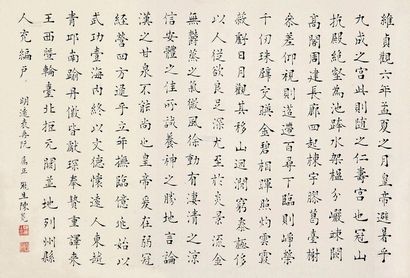 維貞觀六年孟夏之月皇帝避暑乎
九成之宮此則隨之仁壽宮也冠山
抗殿絕壑為池跨水架楹分巖竦闕
高閣周建長廊四起棟宇膠葛臺榭
參差仰視則迢遰百尋下臨則崢嶸
千仞珠璧交暎金碧相暉照灼雲霞
蔽虧日月觀其移山迴澗窮泰極侈
以人從欲良足深尤至於炎景流金
無鬱蒸之氣微風徐動有淒清之涼
信安體之佳所誠養神之勝地言論
漢之甘泉不能尚也皇帝爰在弱冠
經營四方逮乎立撫臨億兆始以
武功壹海內終以文德懷遠人東越
青邱南踰丹徼皆獻琛奉贄重譯來
王西暨輪臺北拒元闕並地列州縣
人充編戶